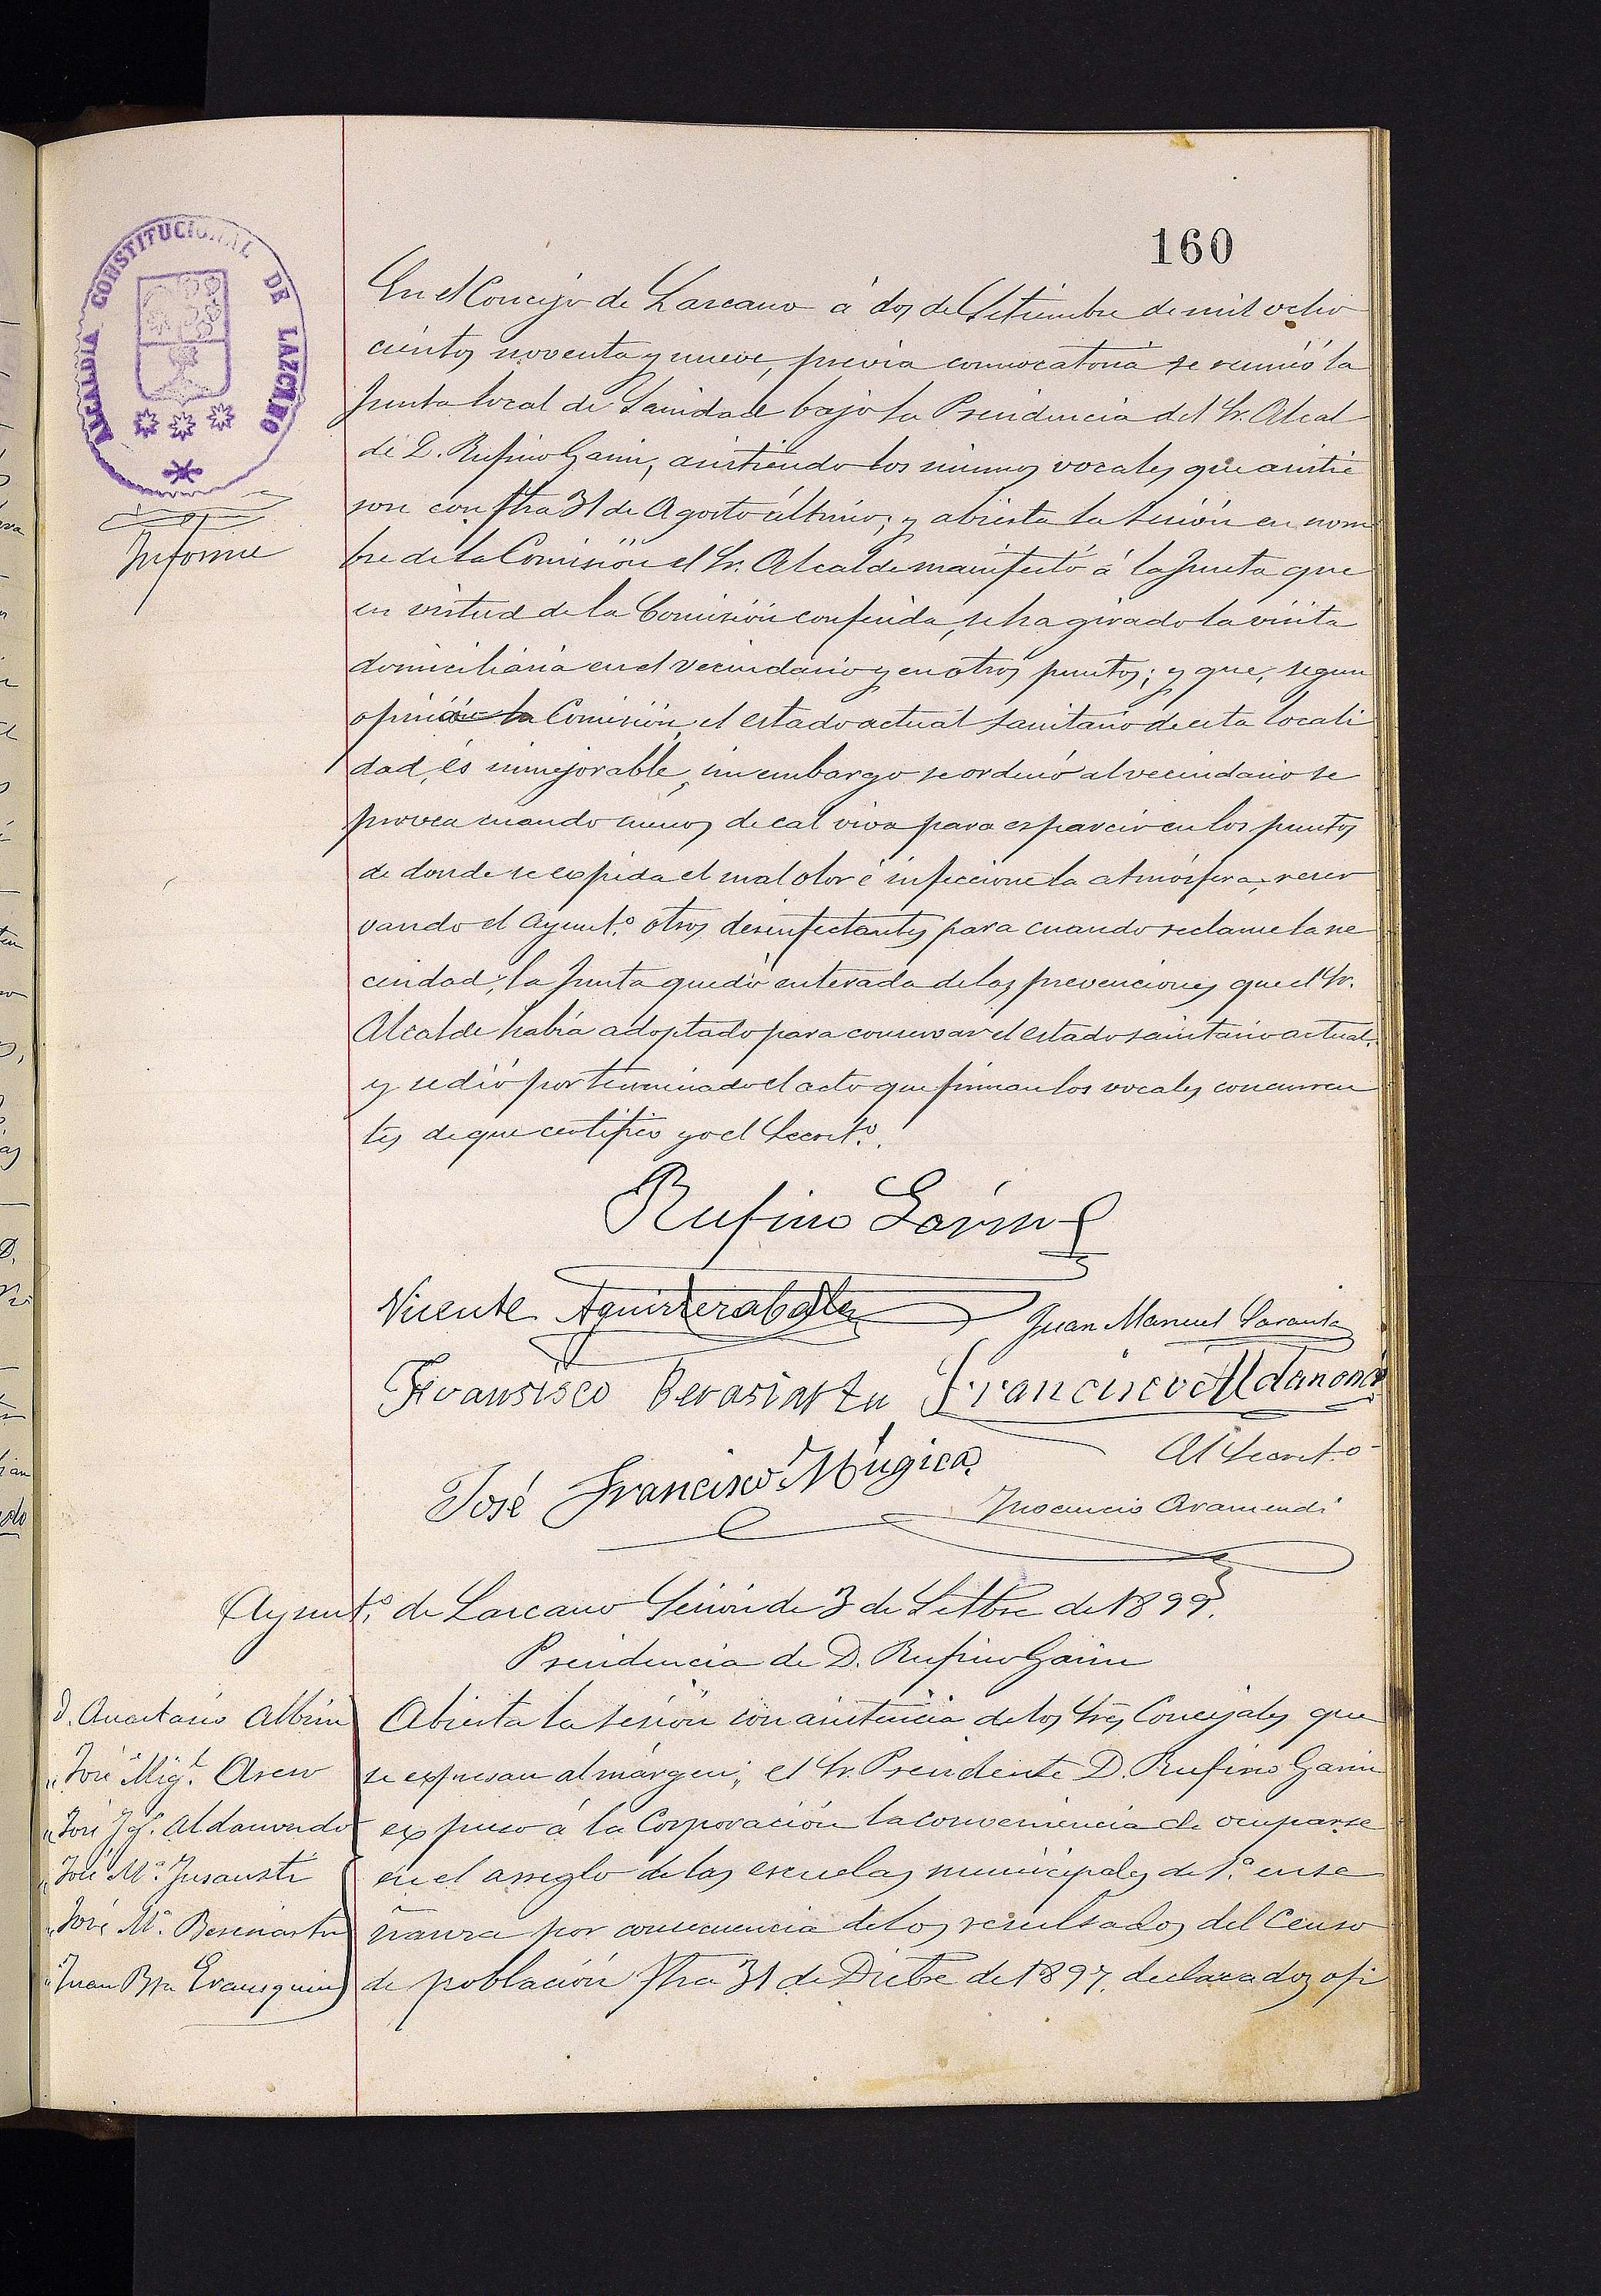 160
ALCALDIA CONSTITUCIONAL DE LAZCANO
Informe
En el Concejo de Lazcano á dos de Setiembre de mil ocho
cientos noventa y nueve, previa convocatoria se reunió la
Junta local de Sanidad bajo la Presidencia del Sr. Alcal
de D. Rufino Garin, asistiendo los mismos vocales que asistie
ron con fha 31 de Agosto último; y abierta la sesión en nom
bre de la Comisión el Sr. Alcalde manifestó á la Junta que
en virtud de la Comisión conferida, se ha girado la visita
domiciliaria en el vecindario y en otros puntos; y que, segun
opinión la Comisión, el estado actual sanitario de esta locali
dad, és inmejorable, sin embargo se ordenó al vecindario se
provea cuando menos de cal viva para esparcir en los puntos
de donde se expida el mal olor é infeccione la atmósfera, reser
vando el Ayunt.º otros desinfectantes para cuando reclame la ne
cesidad; la Junta quedó enterada de las prevenciones que el Sr.
Alcalde había adoptado para conservar el estado sanitario actual,
y se dió por terminado el acto que firman los vocales concurren
tes de que certifico yo el Secret.º.
Rufino Garin
Vicente Aguirrezabala
Juan Manuel
Fransisco Berasiartu Francisco Aldanondo
José Francisco Múgica
El Secret.º
Inocencio Aramendi
Ayunt.º de Lazcano Sesión de 3 de Setbre de 1899.
Presidencia de D. Rufino Garin
D. Anastasio Albisu
" José Mig.l Asew
" José Ig.º Aldanondo
" José M.ª Insausti
" José M.ª Berasiartu
" Juan Bta Erausquin
Abierta la sesión con asistencia de los Sres Concejales que
se expresan al márgen; el Sr. Presidente D. Rufino Garin
expuso á la Corporación la conveniencia de ocuparse
en el arreglo de las escuelas municipales de 1.ª ense
ñanza por consecuencia de los resultados del Censo
de población fha 31 de Dicbre de 1897, declarados ofi